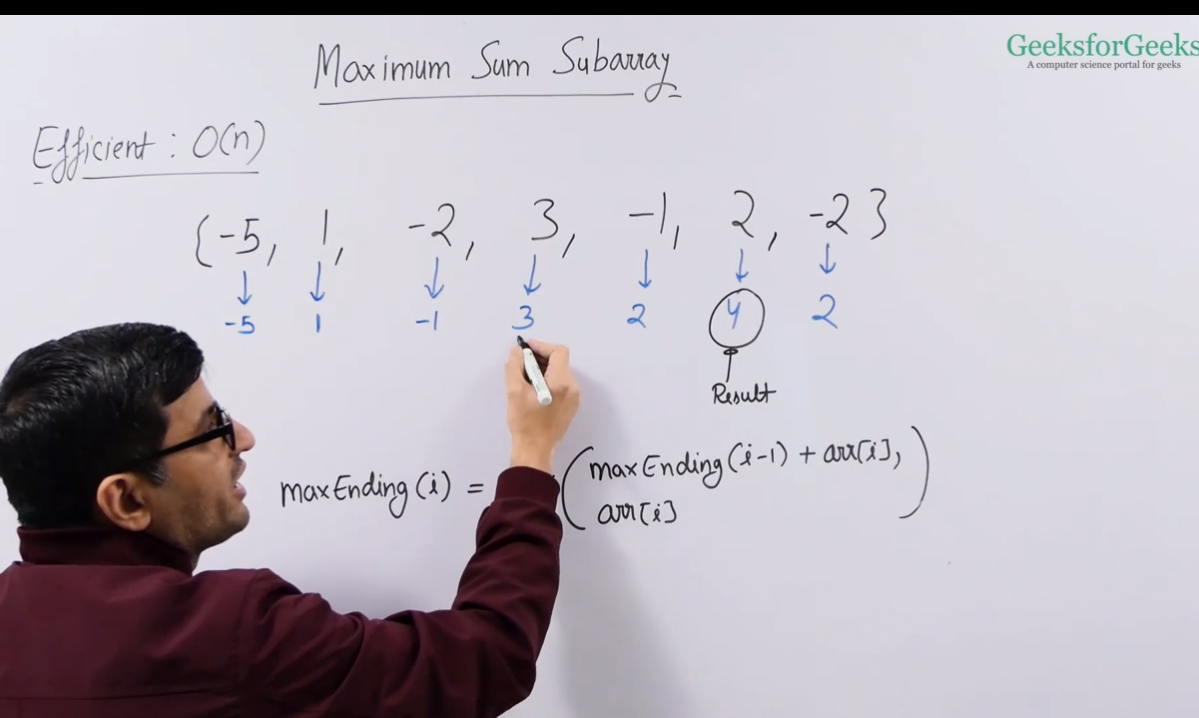 Maximum Sum Subarray
GeeksforGeeks
A computer science portal for geeks
Efficient : O(n)
{-5, 1, -2, 3, -1, 2, -2}
-5 1 -1 3 2 4 2
Result
maxEnding(i) = (maxEnding(i-1) + arr[i],
arr[i])